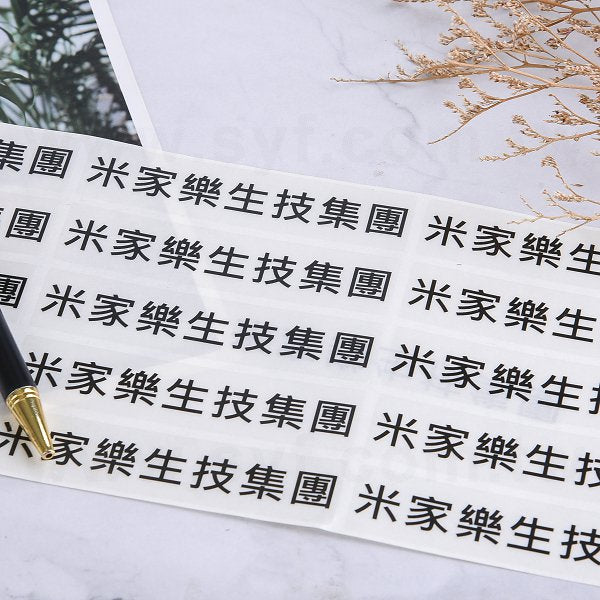 集團 米家樂生技集團 米家樂生
團 米家樂生技集團 米家樂生
團 米家樂生技集團 米家樂生技
米家樂生技集團 米家樂生技
米家樂生技集團 米家樂生技